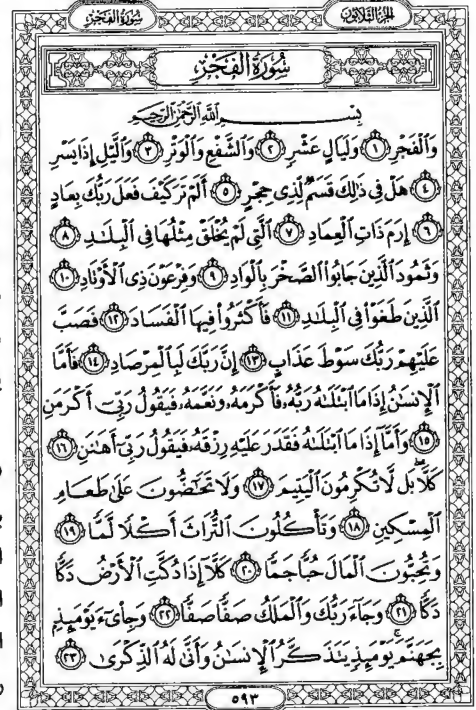 سُورَةُ الفَجْرِ الجُزْءُ الثَّلَاثُونَ
سُورَةُ الفَجْرِ
بِسْمِ اللَّهِ الرَّحْمَٰنِ الرَّحِيمِ
وَٱلْفَجْرِ ١ وَلَيَالٍ عَشْرٍ ٢ وَٱلشَّفْعِ وَٱلْوَتْرِ ٣ وَٱلَّيْلِ إِذَا يَسْرِ
٤ هَلْ فِى ذَٰلِكَ قَسَمٌ لِّذِى حِجْرٍ ٥ أَلَمْ تَرَ كَيْفَ فَعَلَ رَبُّكَ بِعَادٍ
٦ إِرَمَ ذَاتِ ٱلْعِمَادِ ٧ ٱلَّتِى لَمْ يُخْلَقْ مِثْلُهَا فِى ٱلْبِلَٰدِ ٨
وَثَمُودَ ٱلَّذِينَ جَابُوا۟ ٱلصَّخْرَ بِٱلْوَادِ ٩ وَفِرْعَوْنَ ذِى ٱلْأَوْتَادِ ١٠
ٱلَّذِينَ طَغَوْا۟ فِى ٱلْبِلَٰدِ ١١ فَأَكْثَرُوا۟ فِيهَا ٱلْفَسَادَ ١٢ فَصَبَّ
عَلَيْهِمْ رَبُّكَ سَوْطَ عَذَابٍ ١٣ إِنَّ رَبَّكَ لَبِٱلْمِرْصَادِ ١٤ فَأَمَّا
ٱلْإِنسَٰنُ إِذَا مَا ٱبْتَلَىٰهُ رَبُّهُۥ فَأَكْرَمَهُۥ وَنَعَّمَهُۥ فَيَقُولُ رَبِّىٓ أَكْرَمَنِ
١٥ وَأَمَّآ إِذَا مَا ٱبْتَلَىٰهُ فَقَدَرَ عَلَيْهِ رِزْقَهُۥ فَيَقُولُ رَبِّىٓ أَهَٰنَنِ ١٦
كَلَّا ۖ بَل لَّا تُكْرِمُونَ ٱلْيَتِيمَ ١٧ وَلَا تَحَٰٓضُّونَ عَلَىٰ طَعَامِ
ٱلْمِسْكِينِ ١٨ وَتَأْكُلُونَ ٱلتُّرَاثَ أَكْلًا لَّمًّا ١٩
وَتُحِبُّونَ ٱلْمَالَ حُبًّا جَمًّا ٢٠ كَلَّآ إِذَا دُكَّتِ ٱلْأَرْضُ دَكًّا
دَكًّا ٢١ وَجَآءَ رَبُّكَ وَٱلْمَلَكُ صَفًّا صَفًّا ٢٢ وَجِا۟ىٓءَ يَوْمَئِذٍۭ
بِجَهَنَّمَ ۚ يَوْمَئِذٍ يَتَذَكَّرُ ٱلْإِنسَٰنُ وَأَنَّىٰ لَهُ ٱلذِّكْرَىٰ ٢٣
٥٩٣